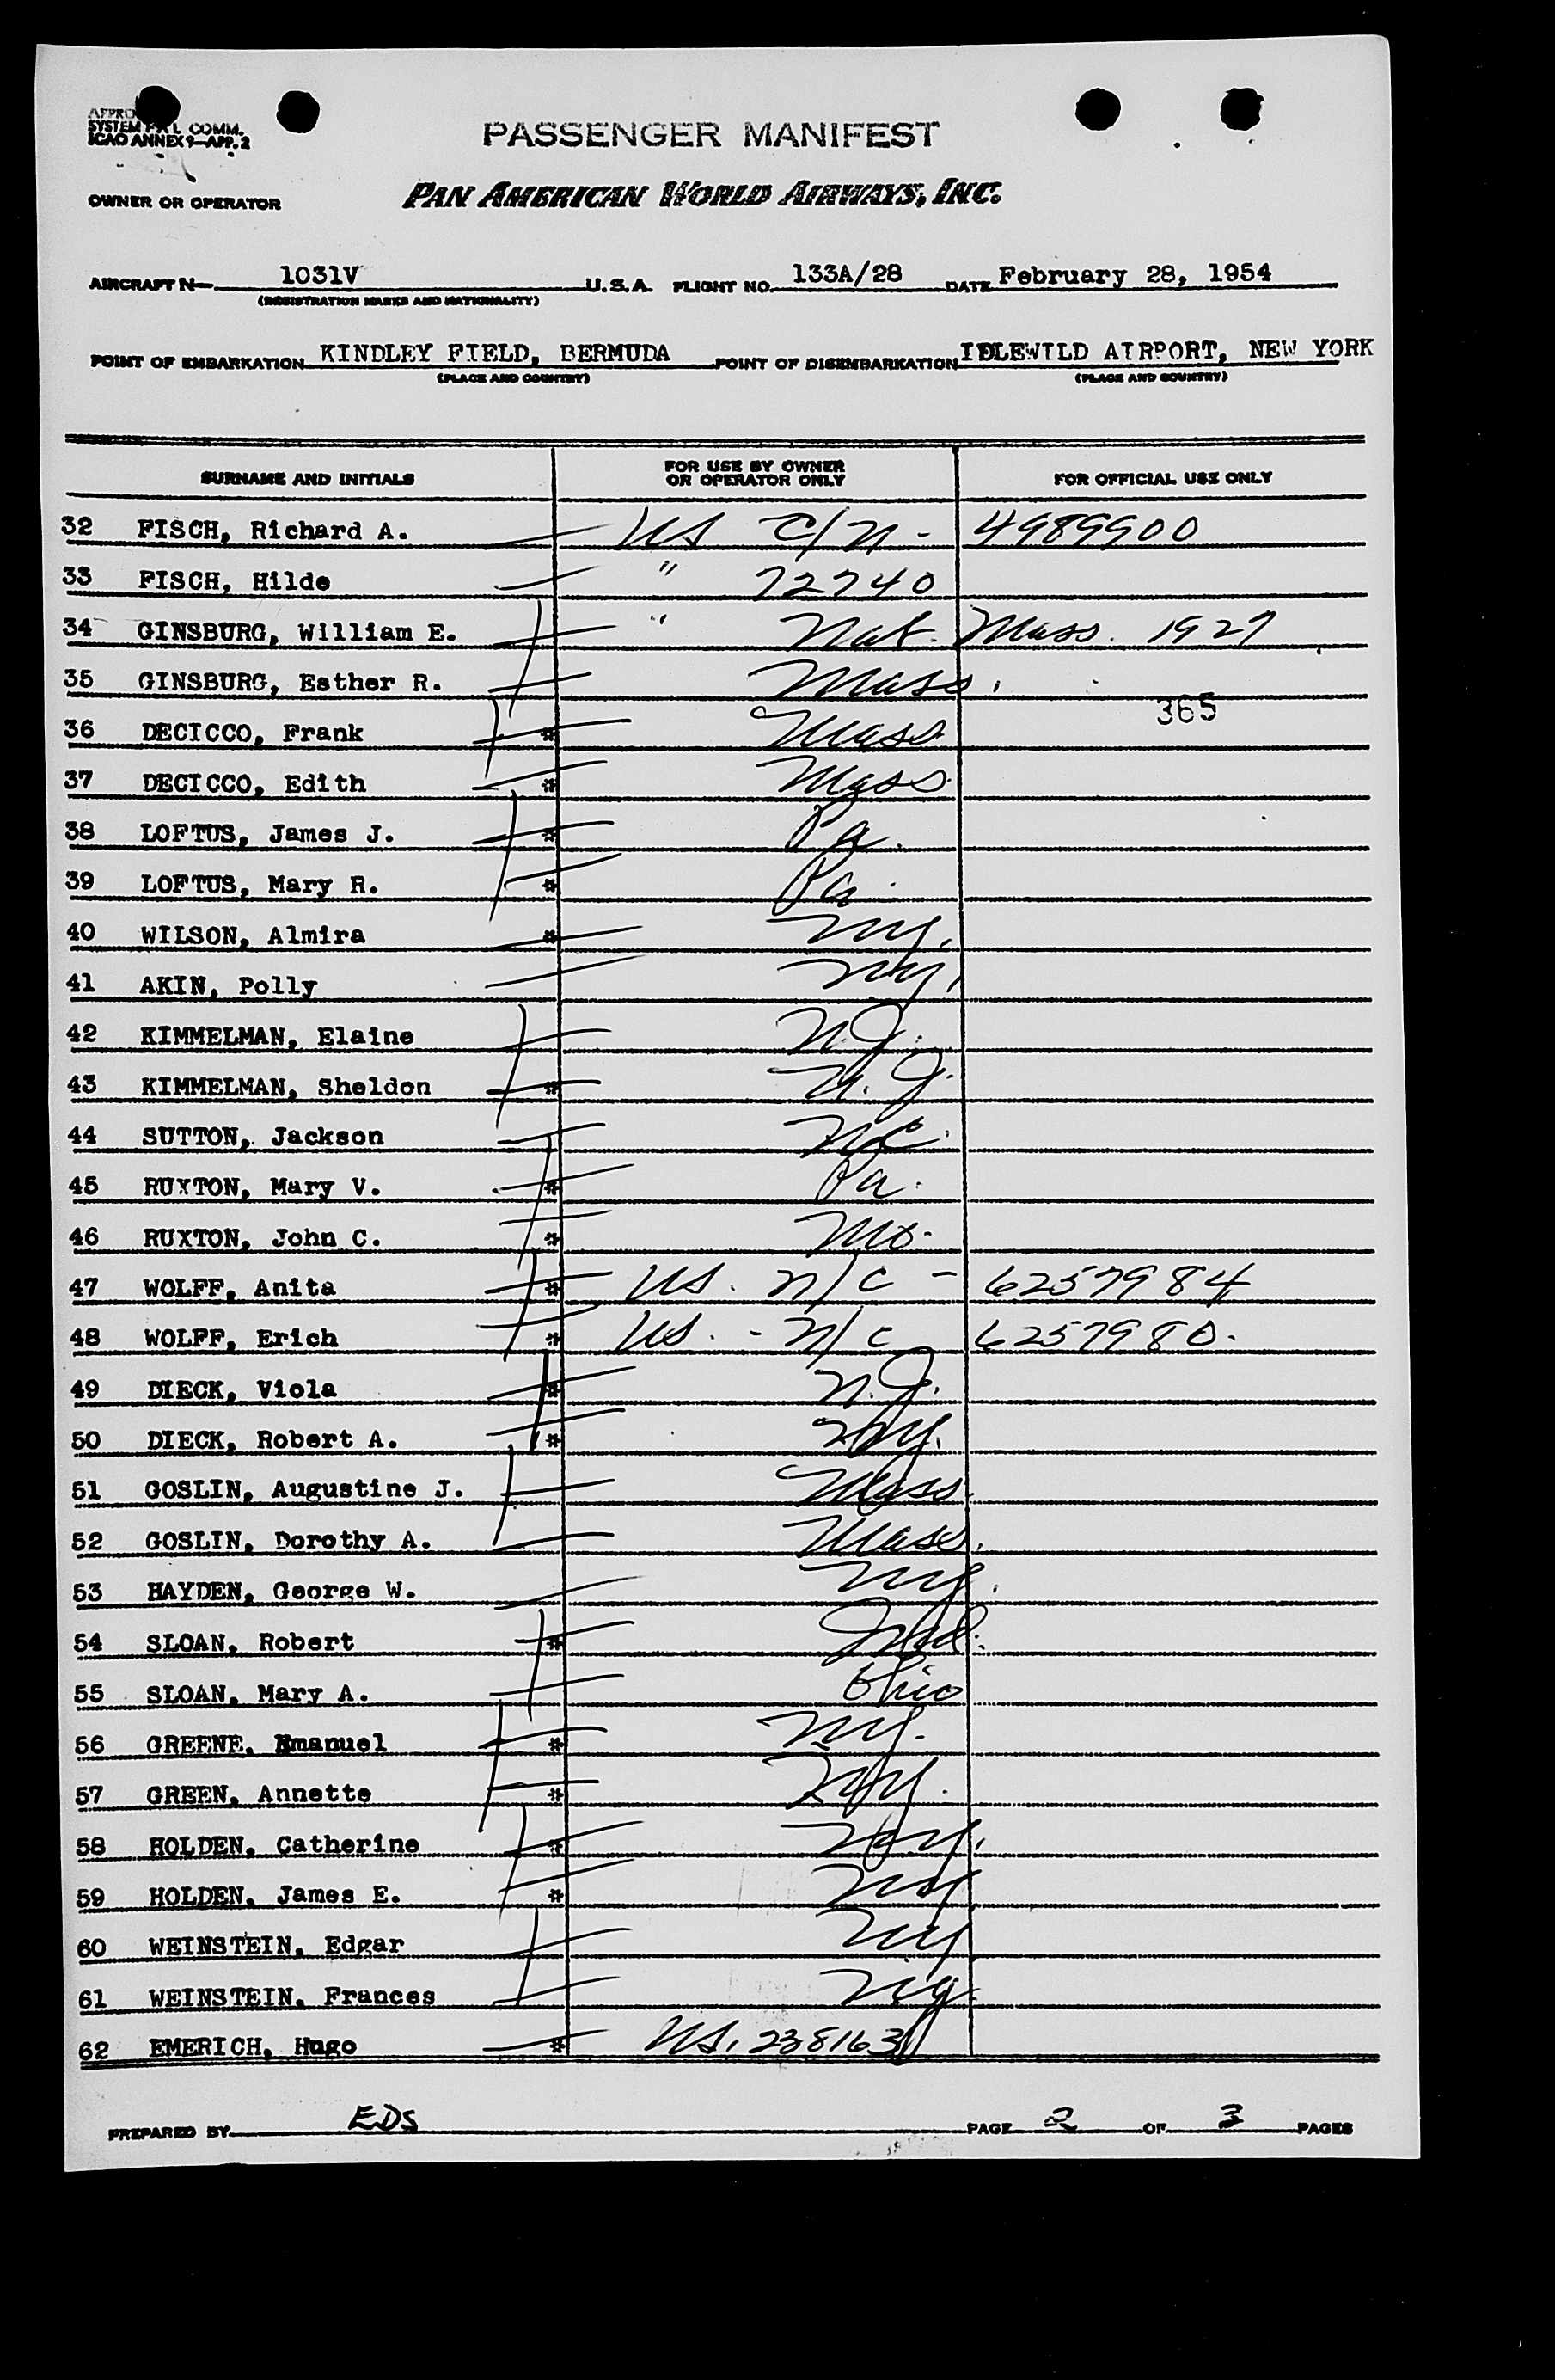 SYSTEM COMM.
ICAO ANNEX 9—APP. 2
PASSENGER MANIFEST
OWNER OR OPERATOR PAN AMERICAN WORLD AIRWAYS, INC.
AIRCRAFT N— 1031V U.S.A. FLIGHT NO. 133A/28 DATE February 28, 1954
(REGISTRATION MARKS AND NATIONALITY)
POINT OF EMBARKATION KINDLEY FIELD, BERMUDA POINT OF DISEMBARKATION IDLEWILD AIRPORT, NEW YORK
(PLACE AND COUNTRY) (PLACE AND COUNTRY)
SURNAME AND INITIALS FOR USE BY OWNER OR OPERATOR ONLY FOR OFFICIAL USE ONLY
32 FISCH, Richard A. US C/N - 4989900
33 FISCH, Hilde " 72740
34 GINSBURG, William E. " Nat. Mass. 1927
35 GINSBURG, Esther R. Mass.
365
36 DECICCO, Frank * Mass
37 DECICCO, Edith * Mass.
38 LOFTUS, James J. * Pa.
39 LOFTUS, Mary R. * Pa.
40 WILSON, Almira * NY.
41 AKIN, Polly NY.
42 KIMMELMAN, Elaine N.J.
43 KIMMELMAN, Sheldon * N.J.
44 SUTTON, Jackson NC.
45 RUXTON, Mary V. * Pa.
46 RUXTON, John C. * Mo.
47 WOLFF, Anita * US. N/C - 6257984
48 WOLFF, Erich * US. - N/C 6257980.
49 DIECK, Viola * N.J.
50 DIECK, Robert A. * NY.
51 GOSLIN, Augustine J. Mass.
52 GOSLIN, Dorothy A. Mass.
53 HAYDEN, George W. NY.
54 SLOAN, Robert * Ind.
55 SLOAN, Mary A. Ohio
56 GREENE, Emanuel * NY.
57 GREEN, Annette * NY.
58 HOLDEN, Catherine * NY.
59 HOLDEN, James E. * NY
60 WEINSTEIN, Edgar NY
61 WEINSTEIN, Frances NY
62 EMERICH, Hugo * US. 238163
PREPARED BY EDS PAGE 2 OF 3 PAGES